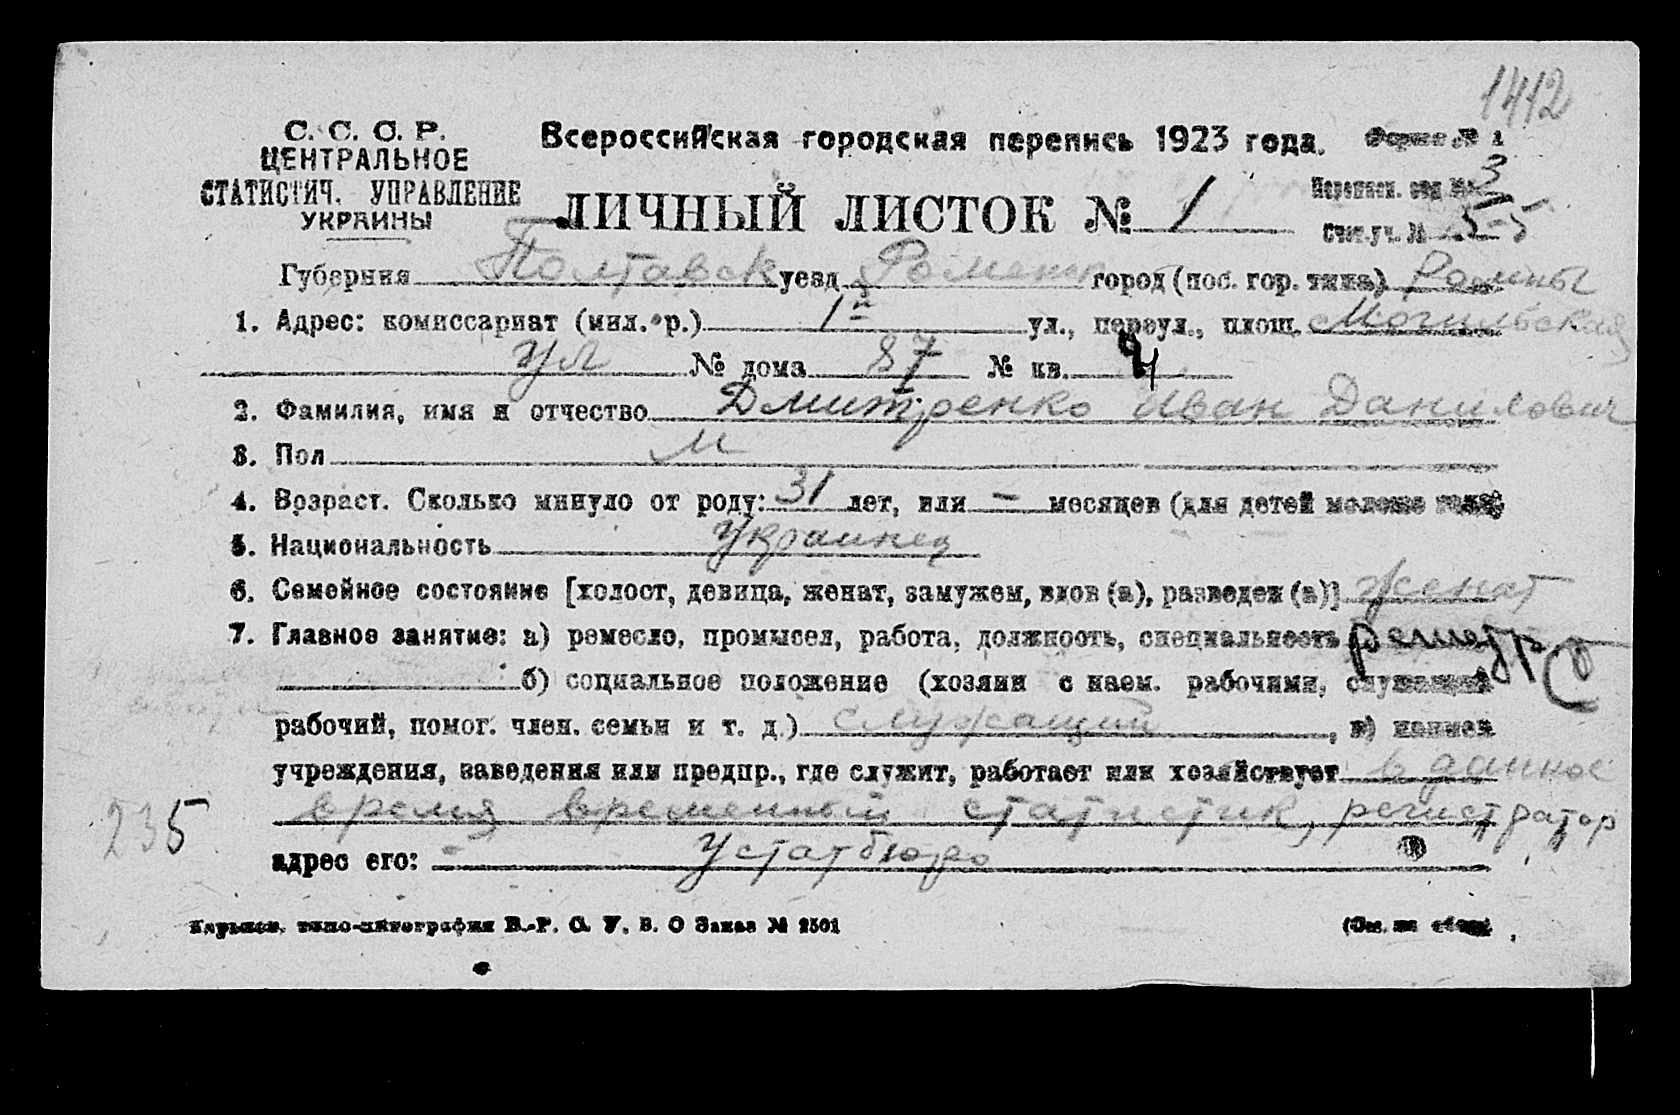 1412
С. С. С. Р.
ЦЕНТРАЛЬНОЕ
СТАТИСТИЧ. УПРАВЛЕНИЕ
УКРАИНЫ
Всероссийская городская перепись 1923 года.
Форма № 1
ЛИЧНЫЙ ЛИСТОК № 1
Переписн. отд. № 3
Счет. уч. № 5-5
Губерния Полтавск уезд Роменск город (пос. гор. типа) Ромны
1. Адрес: комиссариат (мил. р.) 1й ул., переул., площ. Могильская
ул № дома 87 № кв. 4
2. Фамилия, имя и отчество Дмитренко Иван Данилович
3. Пол М
4. Возраст. Сколько минуло от роду: 31 лет, или – месяцев (для детей моложе года)
5. Национальность Украинец
6. Семейное состояние [холост, девица, женат, замужем, вдов (а), разведен (а)] женат
7. Главное занятие: а) ремесло, промысел, работа, должность, специальность
б) социальное положение (хозяин с наем. рабочими, служащий
рабочий, помог. член. семьи и т. д.) служащий, в) наимен
учреждения, заведения или предпр., где служит, работает или хозяйствует в данное
время временный статистик, регистратор
235
адрес его: Устатбюро
Харьков. типо-литография В.-Р. С. У. В. О Заказ № 2501
(См. на обор.)